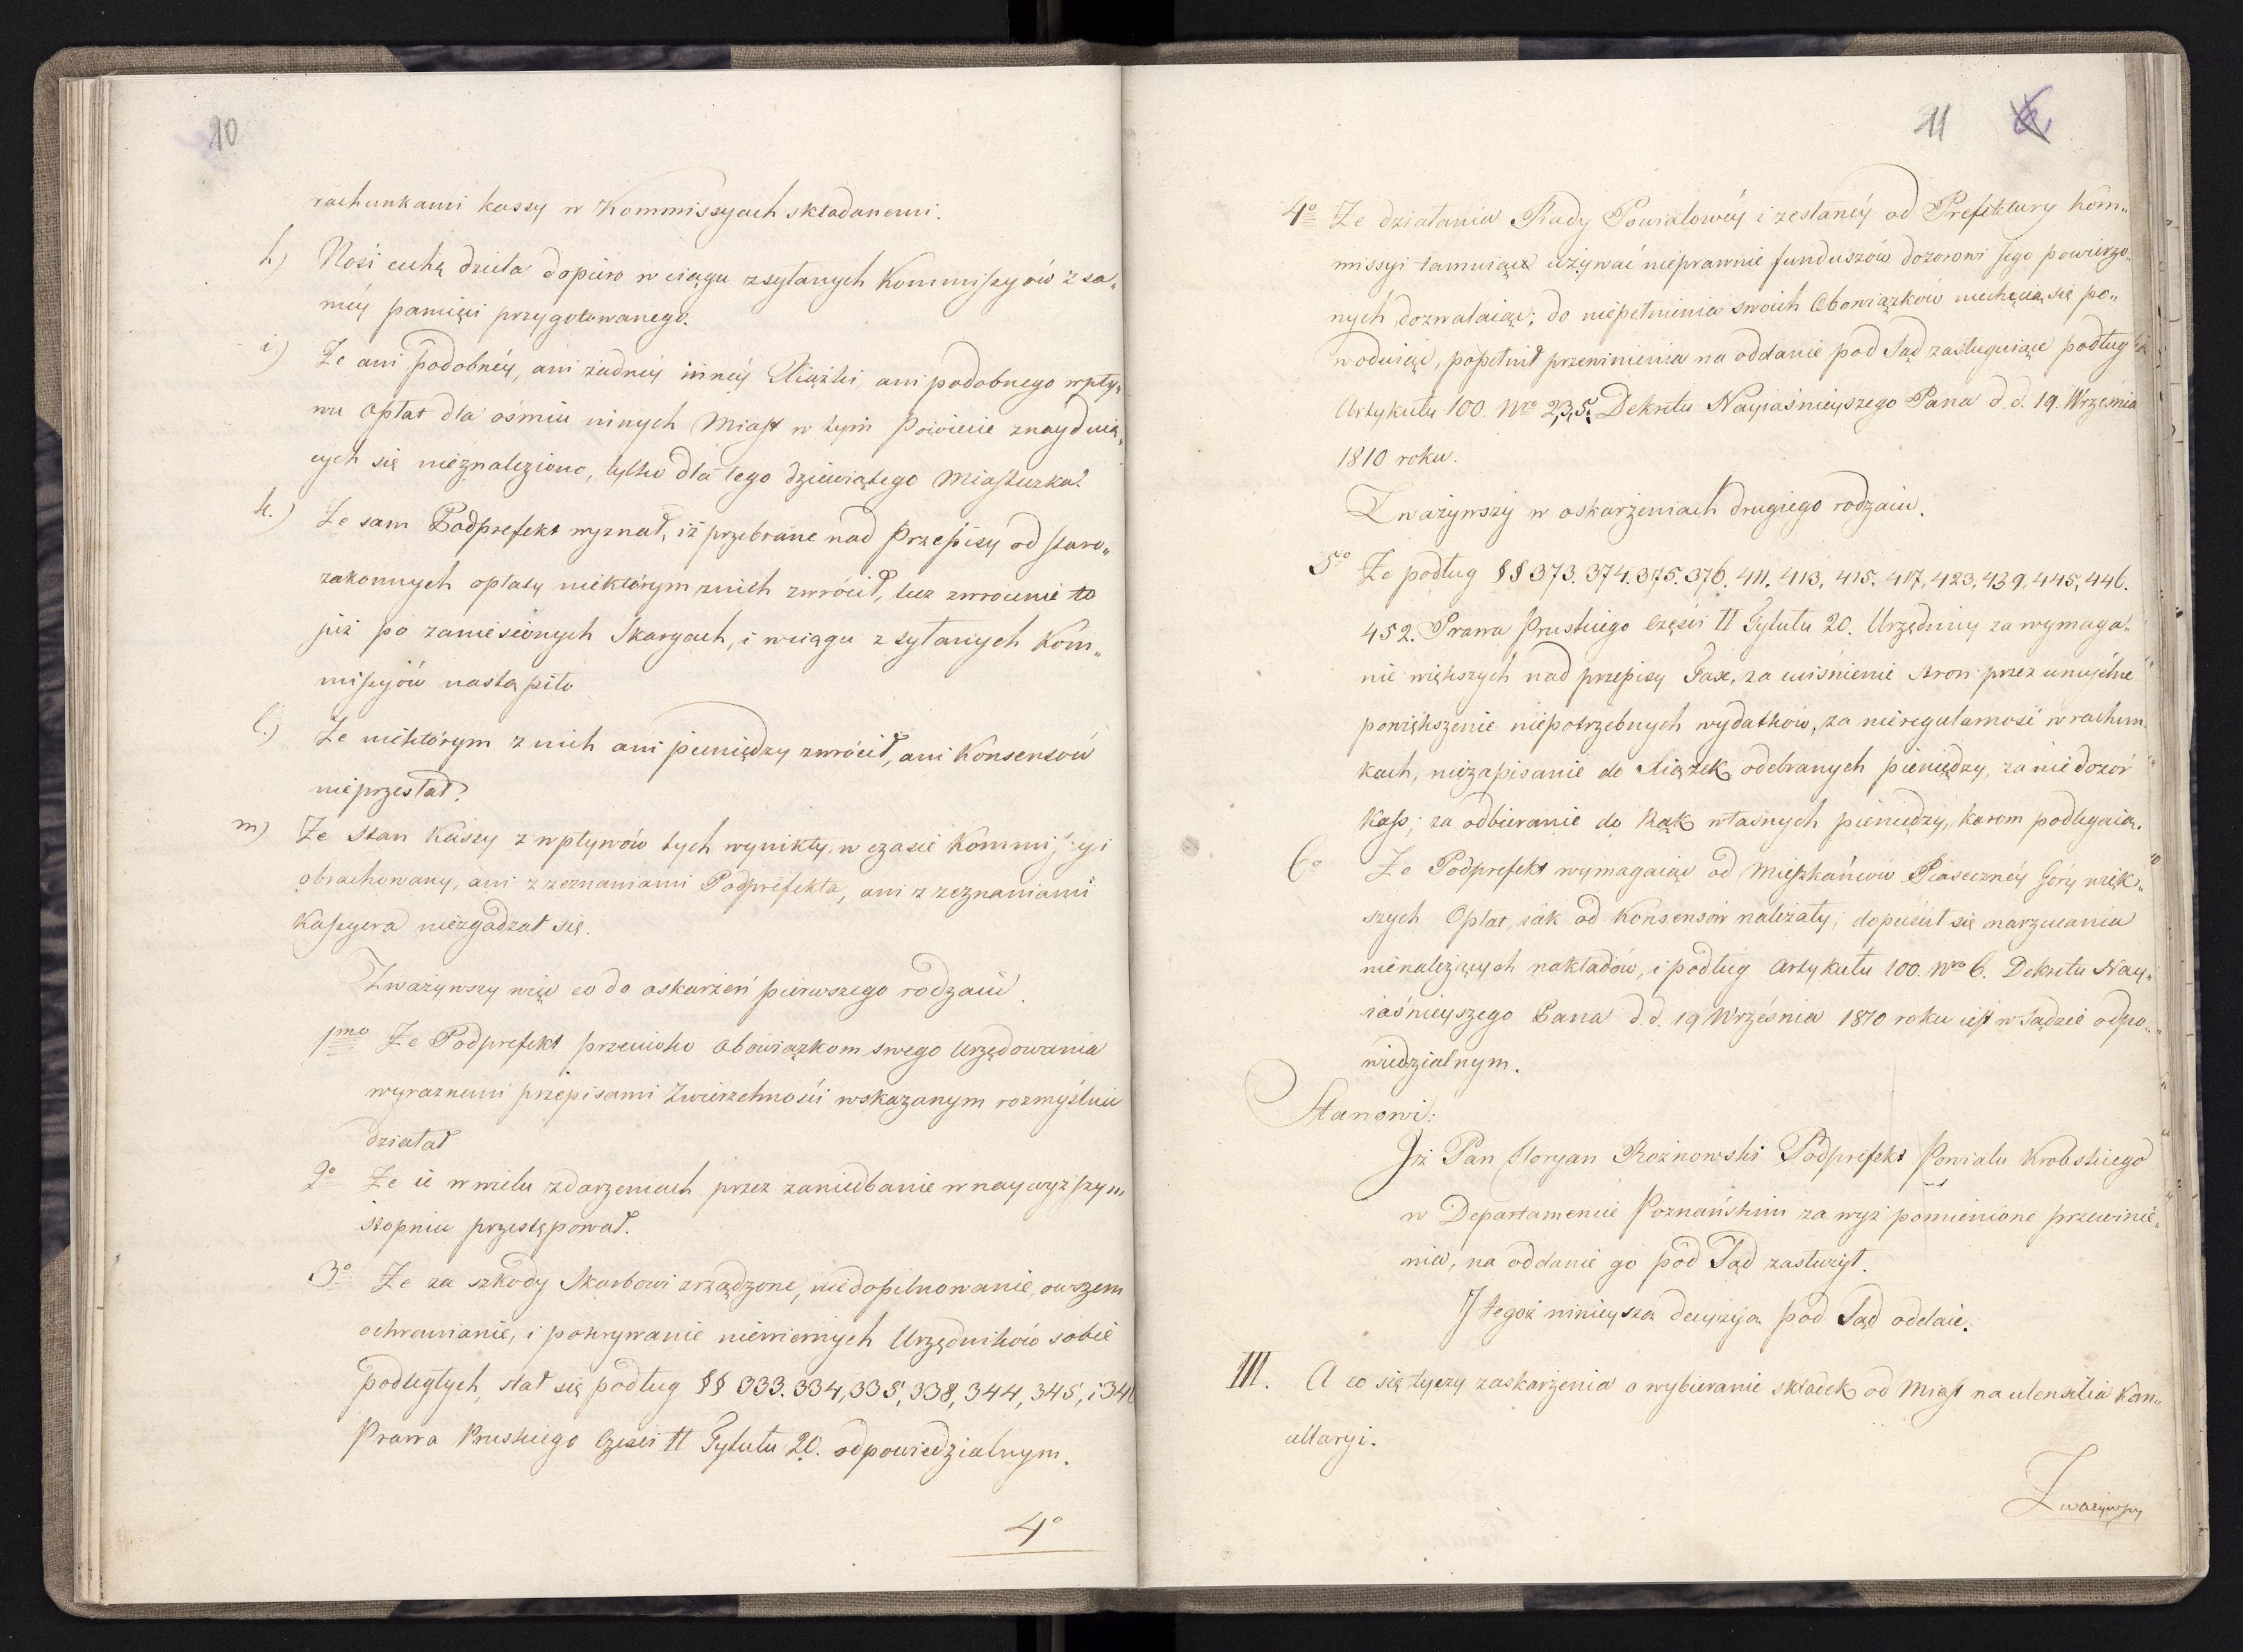 10
rachunkami kassy w Kommissyach składanemi.
h) Nosi cechę dzieła dopiero w ciągu zsyłanych Kommissyiów z sa„
méy pamięci przygotowanego.
i) Że ani podobnéy, ani żadnéy iinéy Xiążki ani podobnego wpły„
wu Opłat dla ośmiu ninych Miast w tym Powiecie znayduią„
cych się nieznaleziono, tylko dla tego dziewiątego Miasteczka.
k.) Że sam Podprefekt wyznał, iż przebrane nad Przepisy od staro„
zakonnych opłaty niektórym znich zwrócił, lecz zwrócenie to
już po zaniesionych Skargach, i wciągu zsyłanych Kom„
missyiów nastąpiło
l.) Że niektórym z nich ani pieniędzy zwrócił, ani Konsensów
nieprzesłał.
m) Że Stan Kassy z wpływów tych wynikły, w czasie Kommissyi
obrachowany, ani z zeznaniami Podprefekta, ani z zeznaniami
Kassyera niezgadzał się.
Zważywszy więc co do oskarżeń pierwszego rodzaiu.
1mo Że Podprefekt przeciwko obowiązkom swego Urzędowania
wyraznemi przepisami Zwierzchności wskazanym rozmyślnie
działał
2o Że ie w wielu zdarzeniach przez zaniedbanie w naywyższym
stopniu przestępował.
3o Że za szkody Skarbowi zrządzone, niedopilnowanie, owszem
ochranianie, i pokrywanie niewiernych Urzędników sobie
podległych, stał się podług §§ 333. 334, 335, 338, 344, 345, i 346
Prawa Pruskiego Części II Tytułu 20. odpowiedzialnym.
4o
11
4o Że działania Rady Powiatowéy i zesłanéy od Prefektury Kom„
missyi tamuiąc używać nieprawnie funduszów dozorowi Jego powierzo„
nych dozwalaiąc; do niepełnienia swoich Obowiązków niechęcią się po„
woduiąc, popełnił przewinienia na oddanie pod Sąd zasługuiące podług
Artykułu 100. Nro 2,3,5, Dekretu Nayiaśnieyszego Pana d. d. 19. Września
1810 roku.
Zważywszy w oskarżeniach drugiego rodzaiu.
5o Że podług §§ 373. 374. 375. 376. 411. 413, 415. 417, 423, 439, 445, 446.
452. Prawa Pruskiego Części II Tytułu 20. Urzędnicy za wymaga„
nie większych nad przepisy Tax, za uciśnienie stron przez umyślne
powiększenie niepotrzebnych wydatków, za nieregularność w rachun„
kach, niezapisanie do Xiążek odebranych pieniędzy, za niedozór
Kass; za odbieranie do Rąk własnych pieniędzy, karom podlegaią.
6o Że Podprefekt wymagaiąc od Mieszkańców Piaseczney Góry więk„
szych Opłat, iak od Konsensów należały; dopuścił się narzucania
nienależących nakładów, i podług Artykułu 100. Nro 6. Dekretu Nay„
iaśnieyszego Pana d. d. 19 Września 1810 roku iest w Sądzie odpo„
wiedzialnym.
Stanowi:
Iż Pan Floryan Rożnowski Podprefekt Powiatu Krobskiego
w Departamencie Poznańskim za wyż pomienione przewinie„
nia, na oddanie go pod Sąd zasłużył.
I tegoż ninieysza decyzya pod Sąd oddaie.
III. A co się tyczy zaskarżenia o wybieranie składek od Miast na utensilia Kan„
cellaryi.
Zważywszy